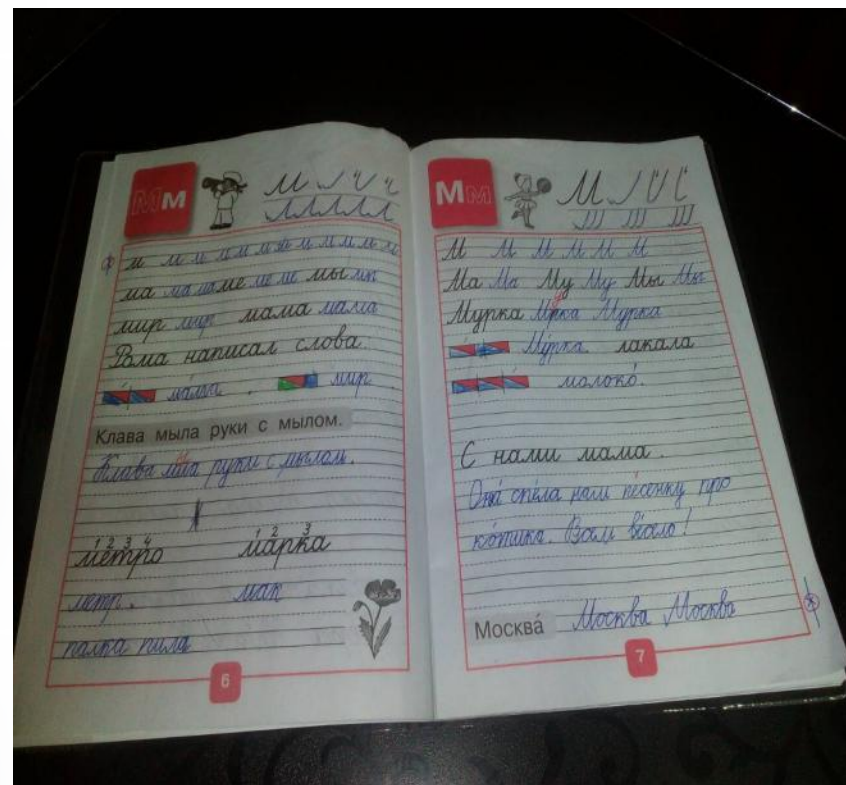 Мм
м м м м м м м м м м м
ма ма ма ме ме ме мы мы
мир мир мама мама
Рома написал слова:
мама. мир.
Клава мыла руки с мылом.
Клава мыла руки с мылом.
1 2 3 4 1 2 3
метро марка
метр. мак
палка пила
6
Мм
М М М М М М
Ма Ма Му Му Мы Мы
Мурка Мурка Мурка
Му́рка лакала
молоко́.
С нами мама.
Она́ спе́ла нам пе́сенку про
ко́тика. Вам
Москва́ Москва Москва
7